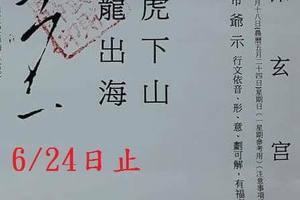 玄宮
月十八日(農曆五月二十四日)星期日(一星期參考用)(注意事項
帝爺示 行文依音、形、意、劃可解,有福
虎下山
龍出海
6/24日止